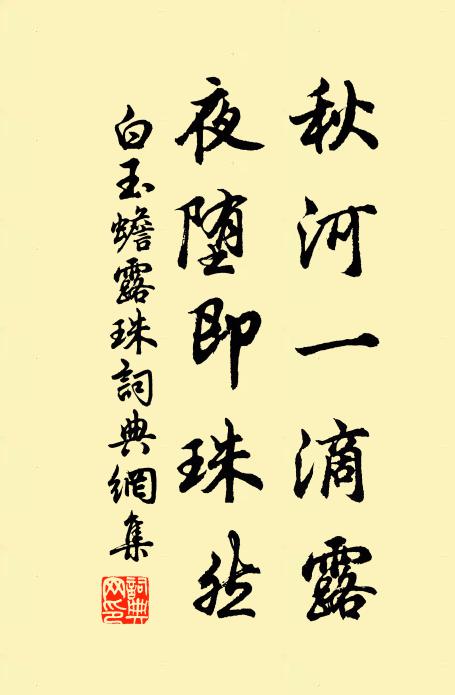 秋河一滴露
夜堕即珠然
白玉蟾露珠詞典網集
詞典網印